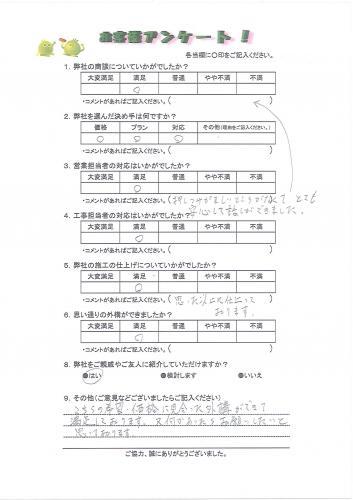 お客様アンケート！
各当欄に〇印をご記入ください。
1. 弊社の商談についていかがでしたか？
大変満足 満足 普通 やや不満 不満
○
・コメントがあればご記入ください。( )
2. 弊社を選んだ決め手は何ですか？
価格 プラン 対応 その他（理由をご記入ください。）
○ ○ ○
3. 営業担当者の対応はいかがでしたか？
大変満足 満足 普通 やや不満 不満
○
・コメントがあればご記入ください。(押しつけがましいところがなくて とても
安心して話しができました。
4. 工事担当者の対応はいかがでしたか？
大変満足 満足 普通 やや不満 不満
○
・コメントがあればご記入ください。( )
5. 弊社の施工の仕上げについていかがでしたか？
大変満足 満足 普通 やや不満 不満
○
・コメントがあればご記入ください。(思った以上に仕上って
おります。
6. 思い通りの外構ができましたか？
大変満足 満足 普通 やや不満 不満
○
8. 弊社をご親戚やご友人に紹介していただけますか？
●はい ●検討します ●いいえ
9. その他（ご意見などございましたらご記入ください。）
こちらの希望・価格に見合った外構ができて
満足しております。又何かあったらお願いしたいと
思いております。
ご協力、誠にありがとうございました。